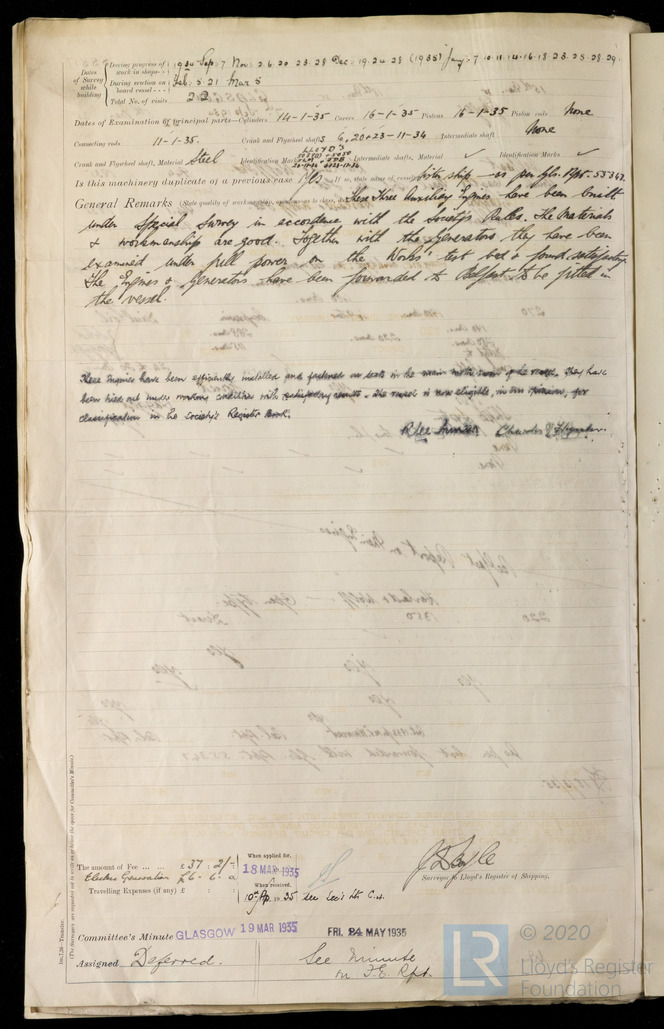 Dates of Survey while building
During progress of work in shops - - 1934 Sep. 7 Nov. 2. 6. 20. 23. 28 Dec. 19. 24. 28 (1935) Jany 7. 10. 11. 14. 16. 18. 23. 25. 28. 29.
During erection on board vessel - - - Feb. 5. 21 Mar 5
Total No. of visits 22
Dates of Examination of principal parts—Cylinders 14-1-35 Covers 16-1-35 Pistons 16-1-35 Piston rods None
Connecting rods 11-1-35. Crank and Flywheel shafts 6, 20 & 23-11-34 Intermediate shaft None
Crank and Flywheel shaft, Material Steel Identification Mark LLOYD'S Intermediate shafts, Material ✓ Identification Marks ✓
Is this machinery duplicate of a previous case Yes If so, state name of vessel Sister ship - as per Gls. Rpt. 55347.
General Remarks (State quality of workmanship, opinions as to class, &c. These Three Auxiliary Engines have been built
under Special Survey in accordance with the Society's Rules. The Materials
& workmanship are good. Together with the Generators they have been
examined under full power on the Works' test bed & found satisfactory.
The Engines & Generators have been forwarded to Belfast to be fitted in
the vessel.
These Engines have been efficiently installed and fastened on seats in the main of the vessel. They have
been tried out under working conditions with satisfactory results. The vessel is now eligible, in our opinion, for
classification in the Society's Register Book.
R Lee
The amount of Fee ... ... £ 37 : 2/- :
Electric Generation £6 - 6. 0
Travelling Expenses (if any) £ : :
When applied for,
18 MAR 1935
When received,
10th Ap. 1935 see
Surveyor to Lloyd's Register of Shipping.
Committee's Minute GLASGOW 19 MAR 1935 FRI. 24 MAY 1935
Assigned Deferred. See Minute
on F.E. Rpt.
1m,7,28—Transfer.
(The Surveyors are requested not to write on or below the space for Committee's Minute.)
LR
© 2020
Lloyd's Register
Foundation